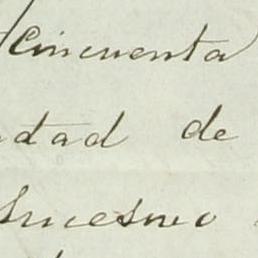 Cincuenta
dad de
sucesivo